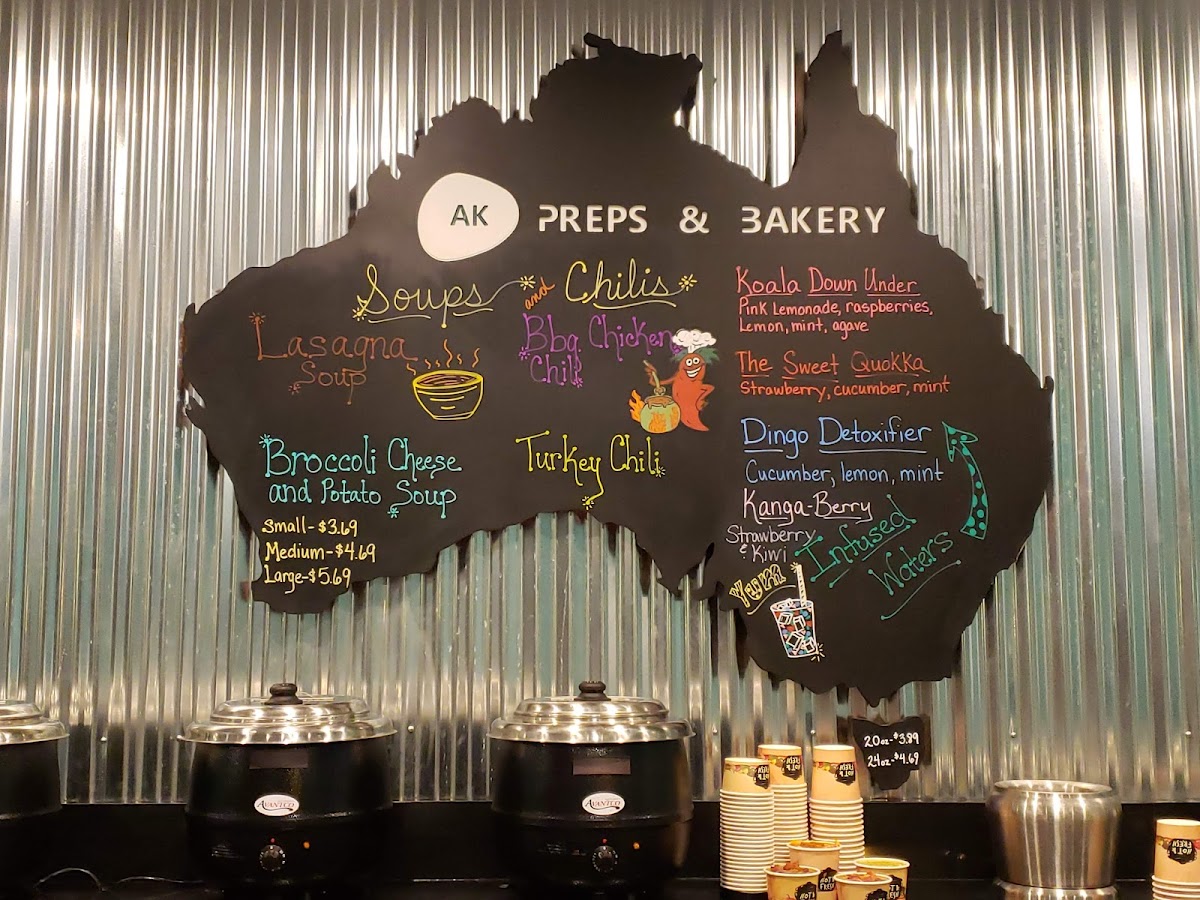 AK PREPS & BAKERY
Soups and Chilis
Lasagna
Soup
Bbq Chicken
Chili
Broccoli Cheese
and Potato Soup
Turkey Chili
Small-$3.69
Medium-$4.69
Large-$5.69
Koala Down Under
Pink Lemonade, raspberries,
Lemon, mint, agave
The Sweet Quokka
Strawberry, cucumber, mint
Dingo Detoxifier
Cucumber, lemon, mint
Kanga-Berry
Strawberry
& Kiwi
Infused
Waters
Yum
20oz-$3.89
24oz-$4.69
AVANTCO
AVANTCO
HOT &
FRESH
HOT &
FRESH
HOT &
FRESH
HOT &
FRESH